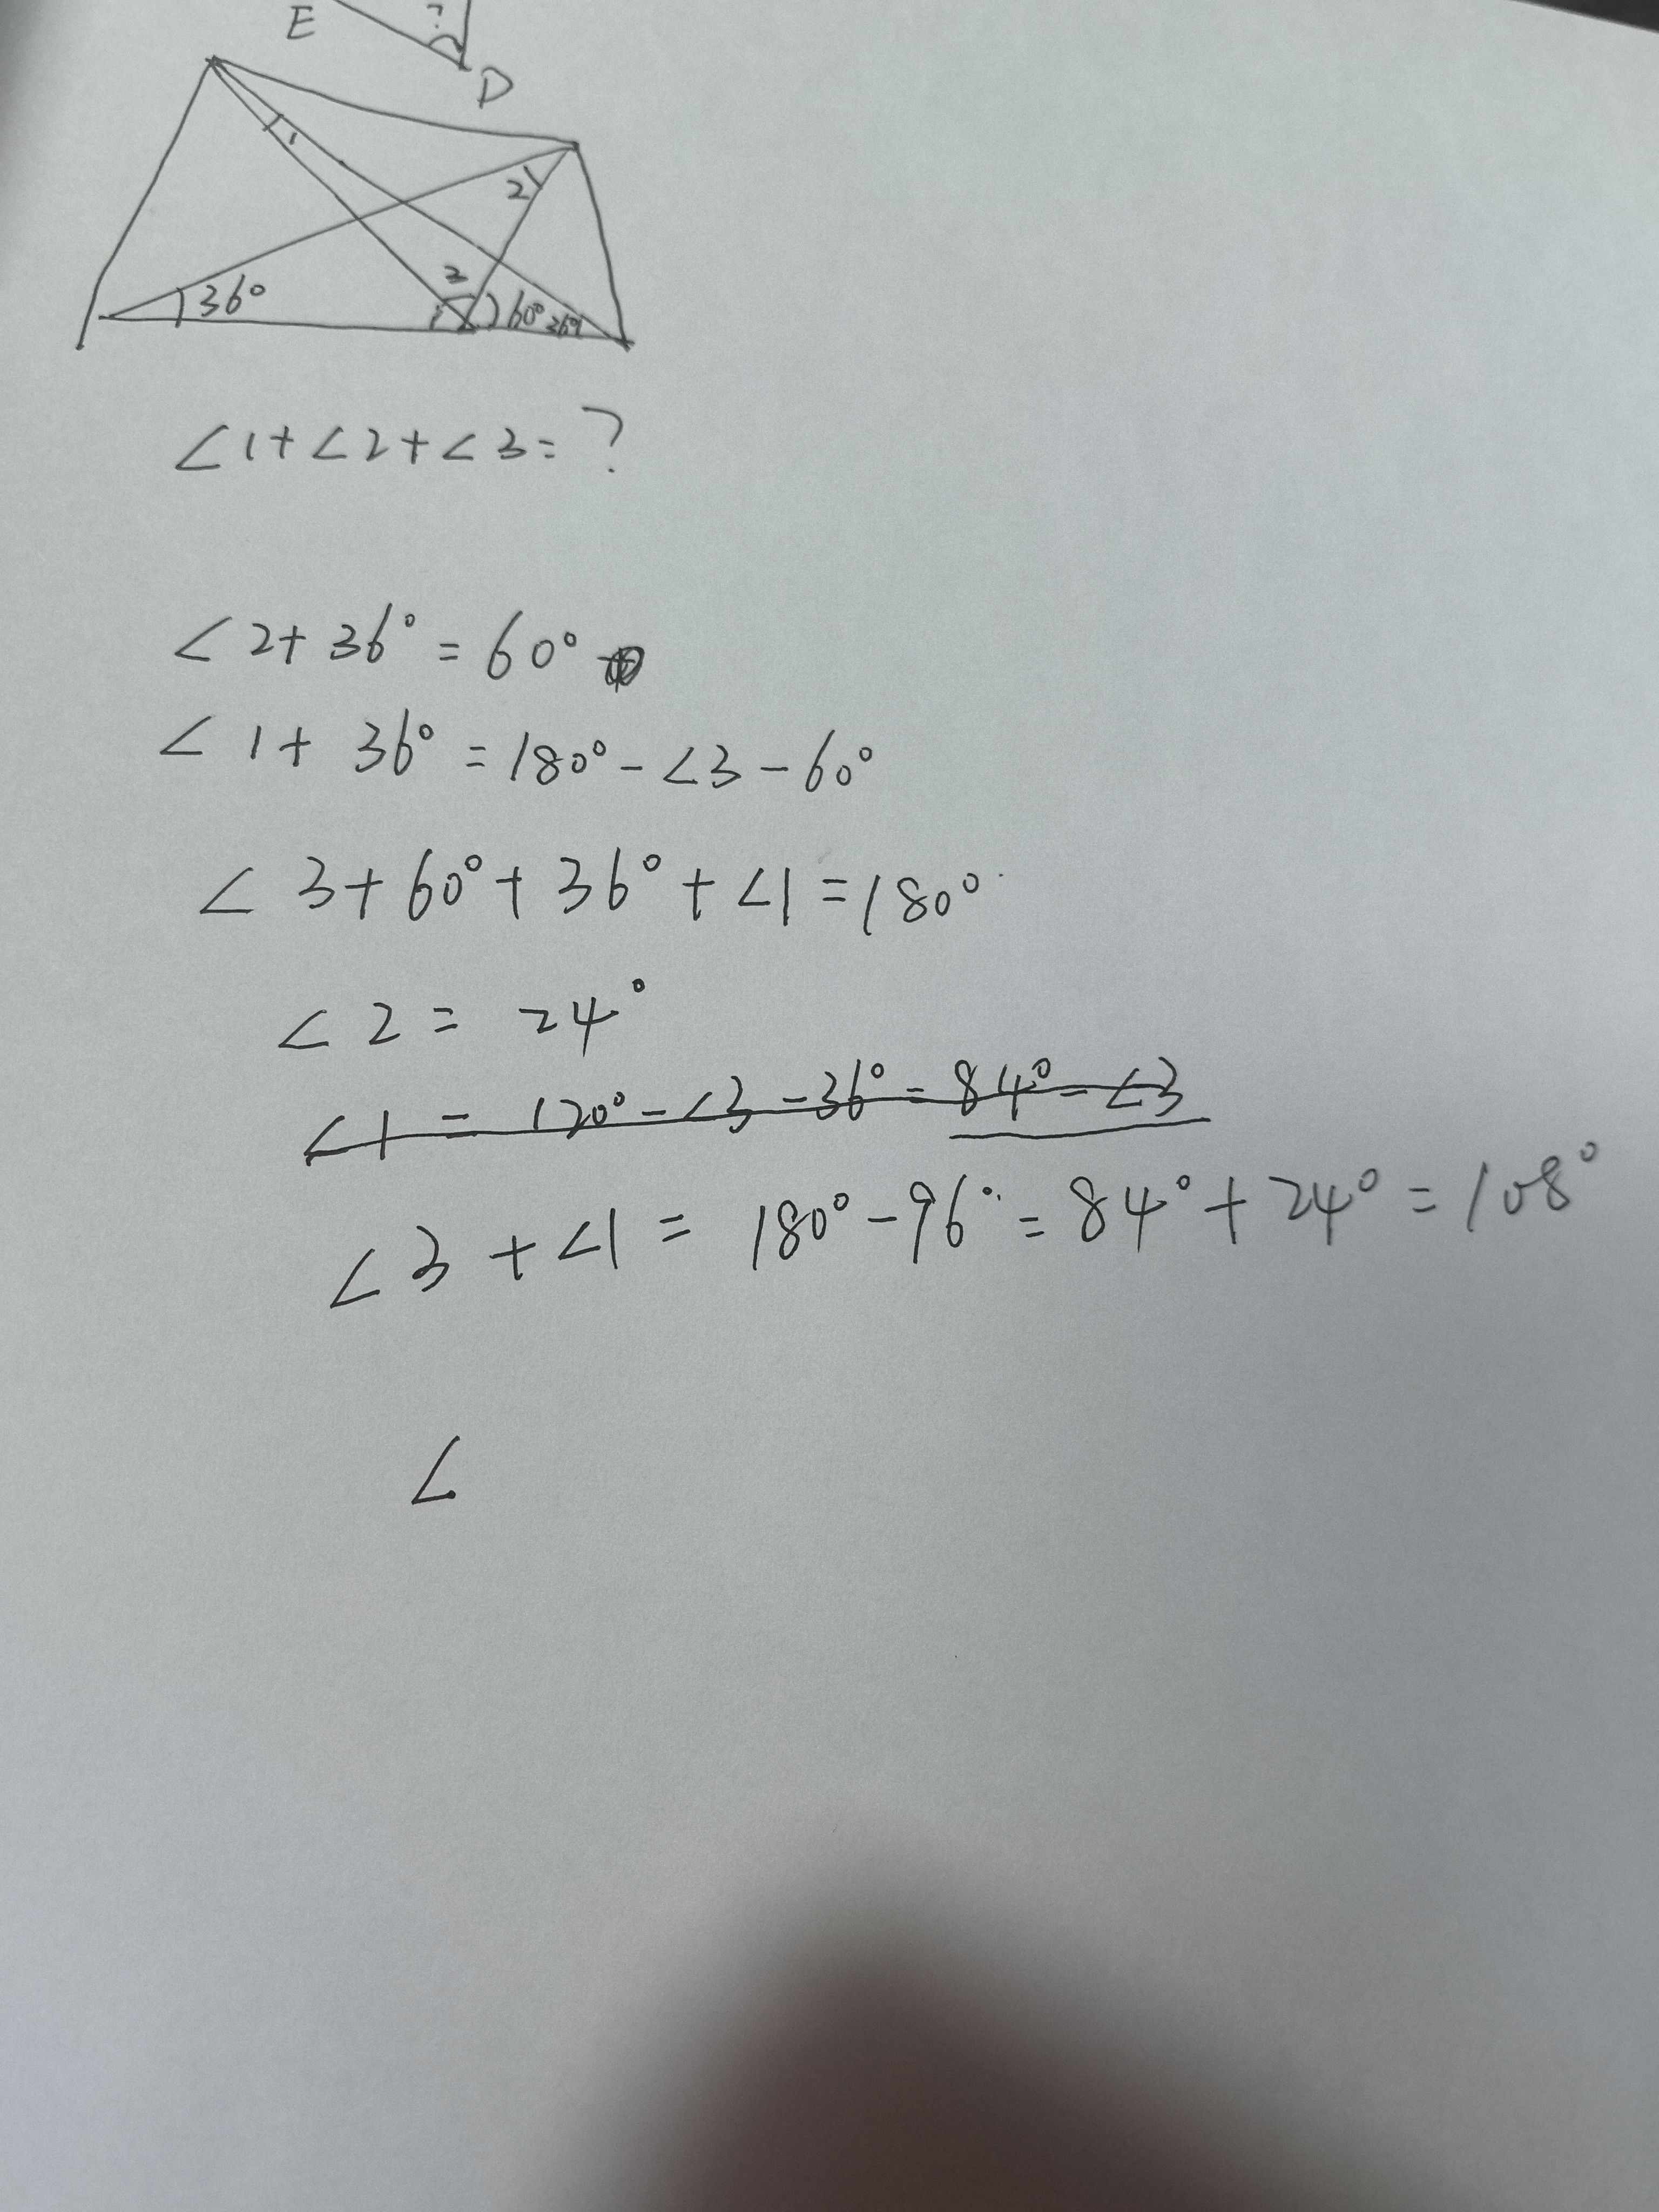 E ?
D
1
2
36° 3 60° 36°
∠1+∠2+∠3=?
∠2+36°=60°
∠1+36°=180°-∠3-60°
∠3+60°+36°+∠1=180°
∠2=24°
∠1=120°-∠3-36°=84°-∠3
∠3+∠1=180°-96°=84°+24°=108°
∠